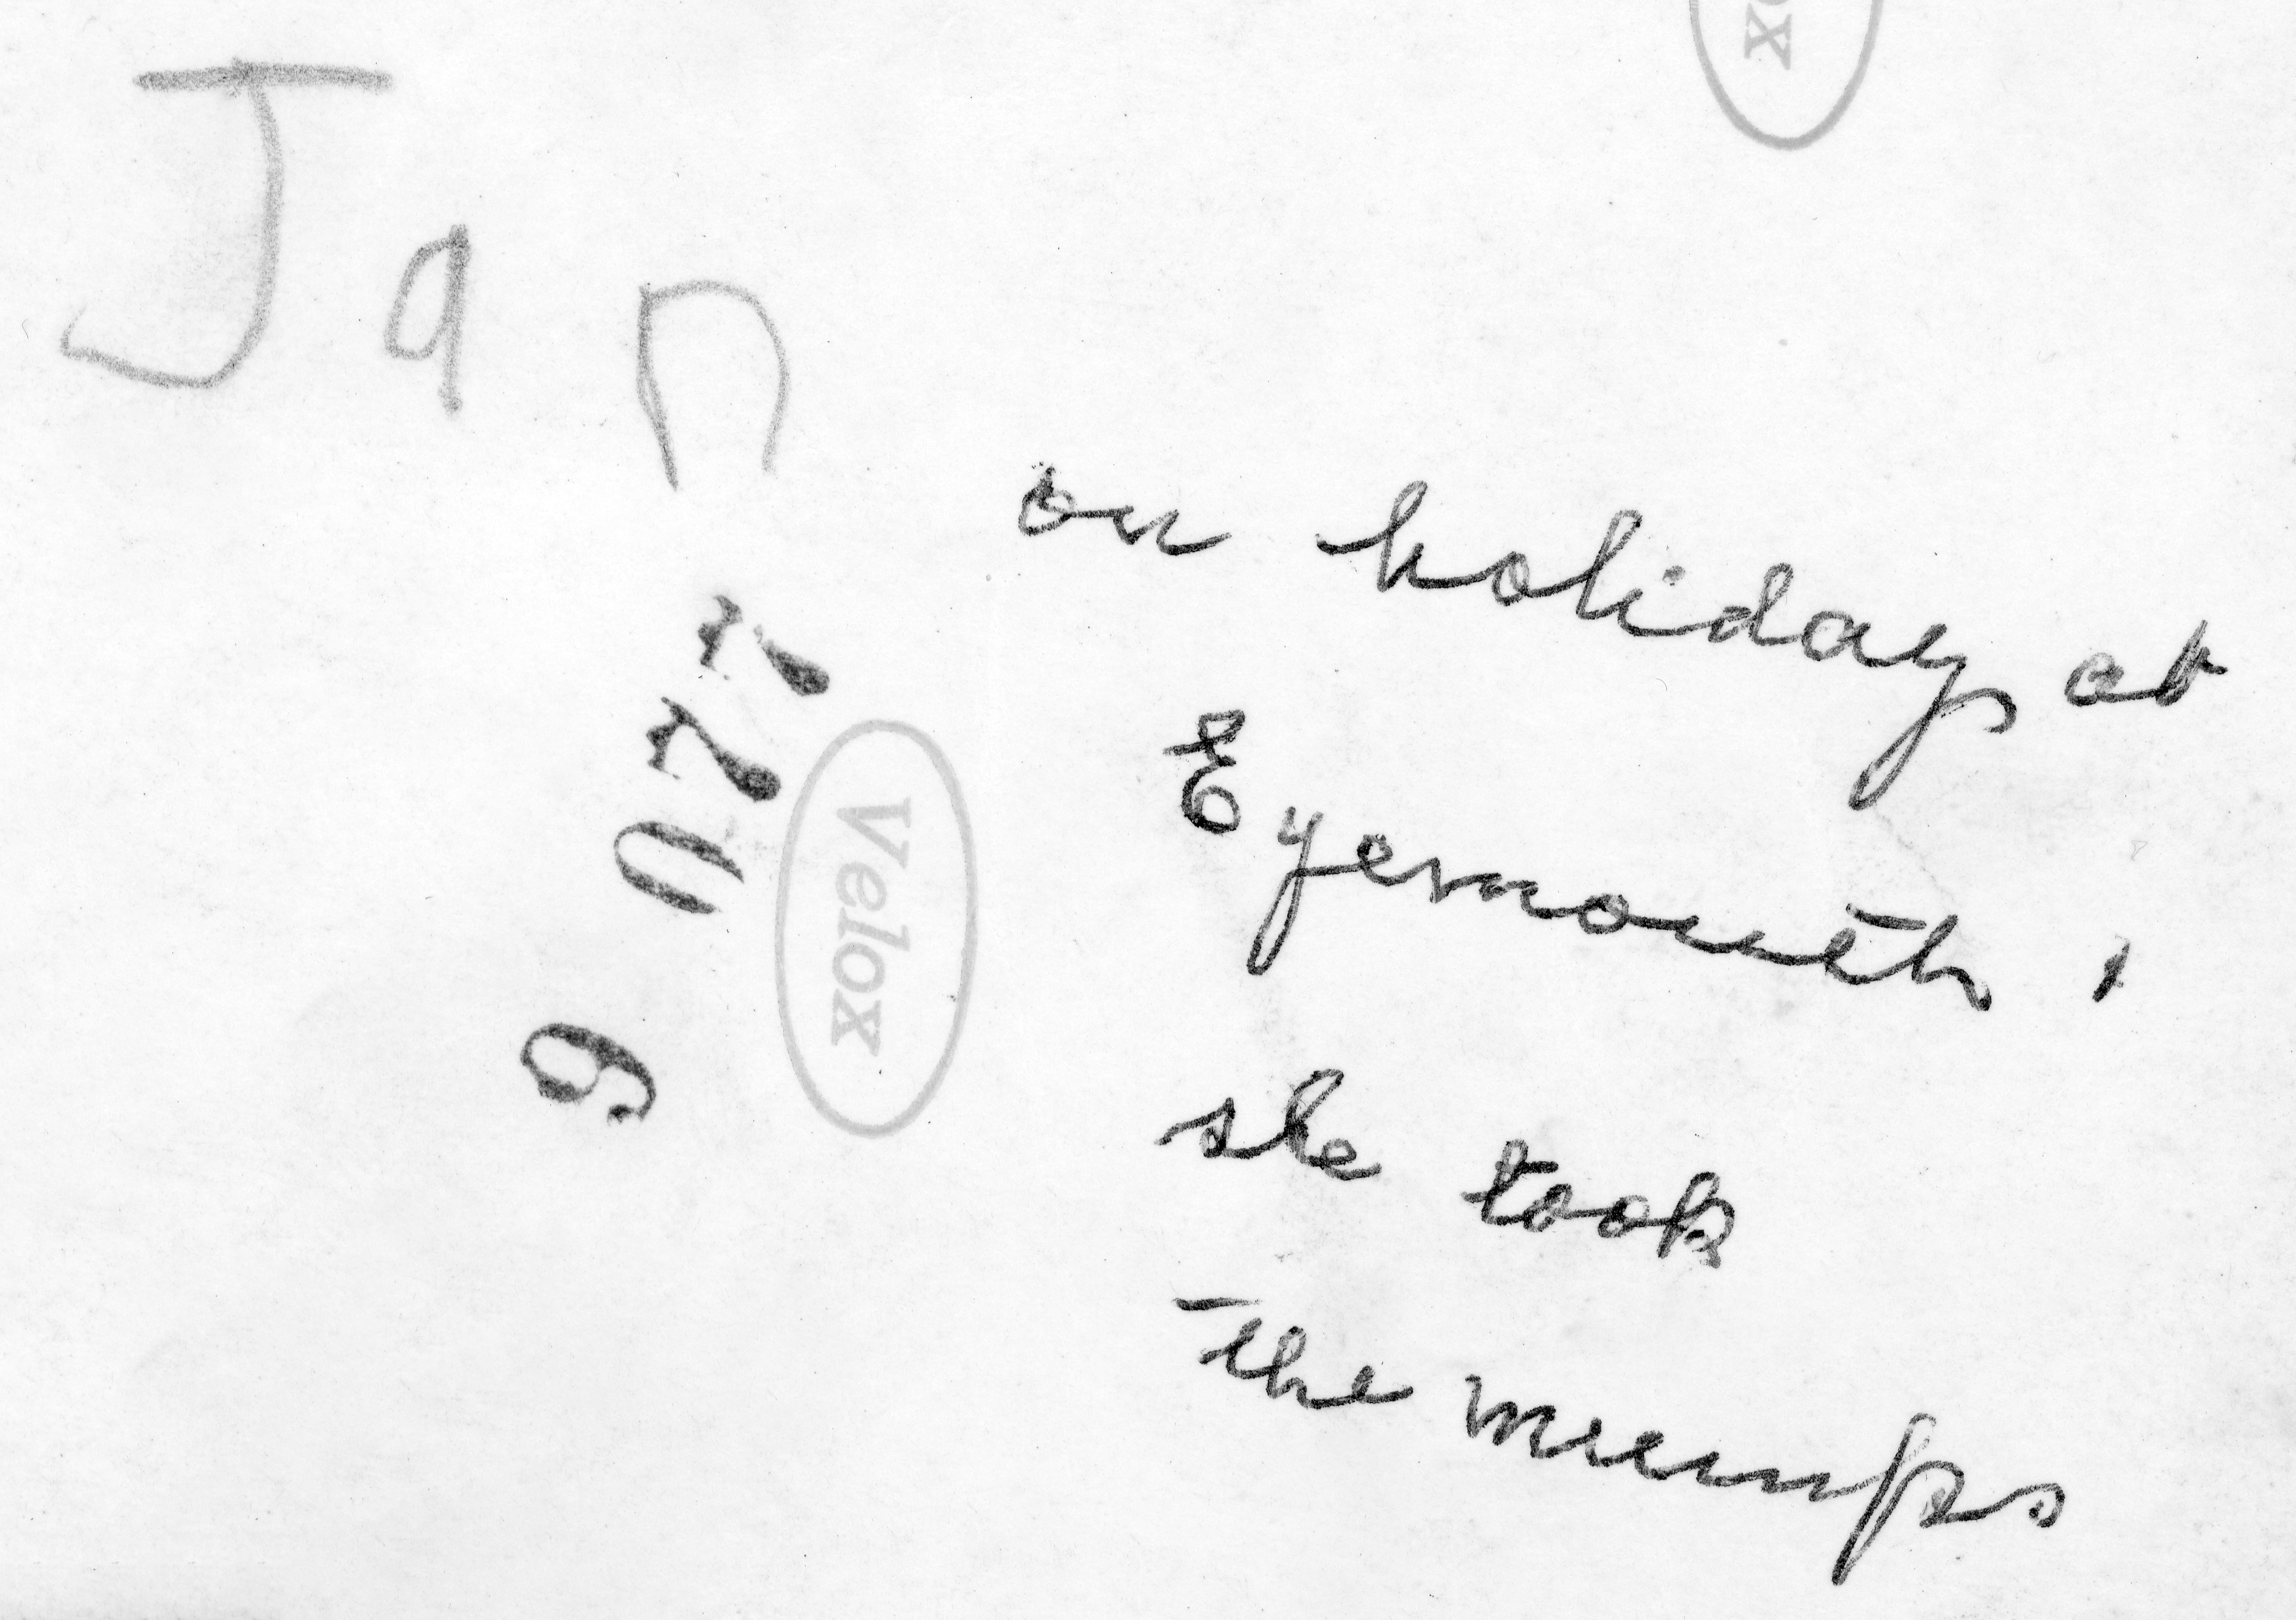 ox
Jan
on holiday at
Eyemouth,
she took
the mumps
Velox